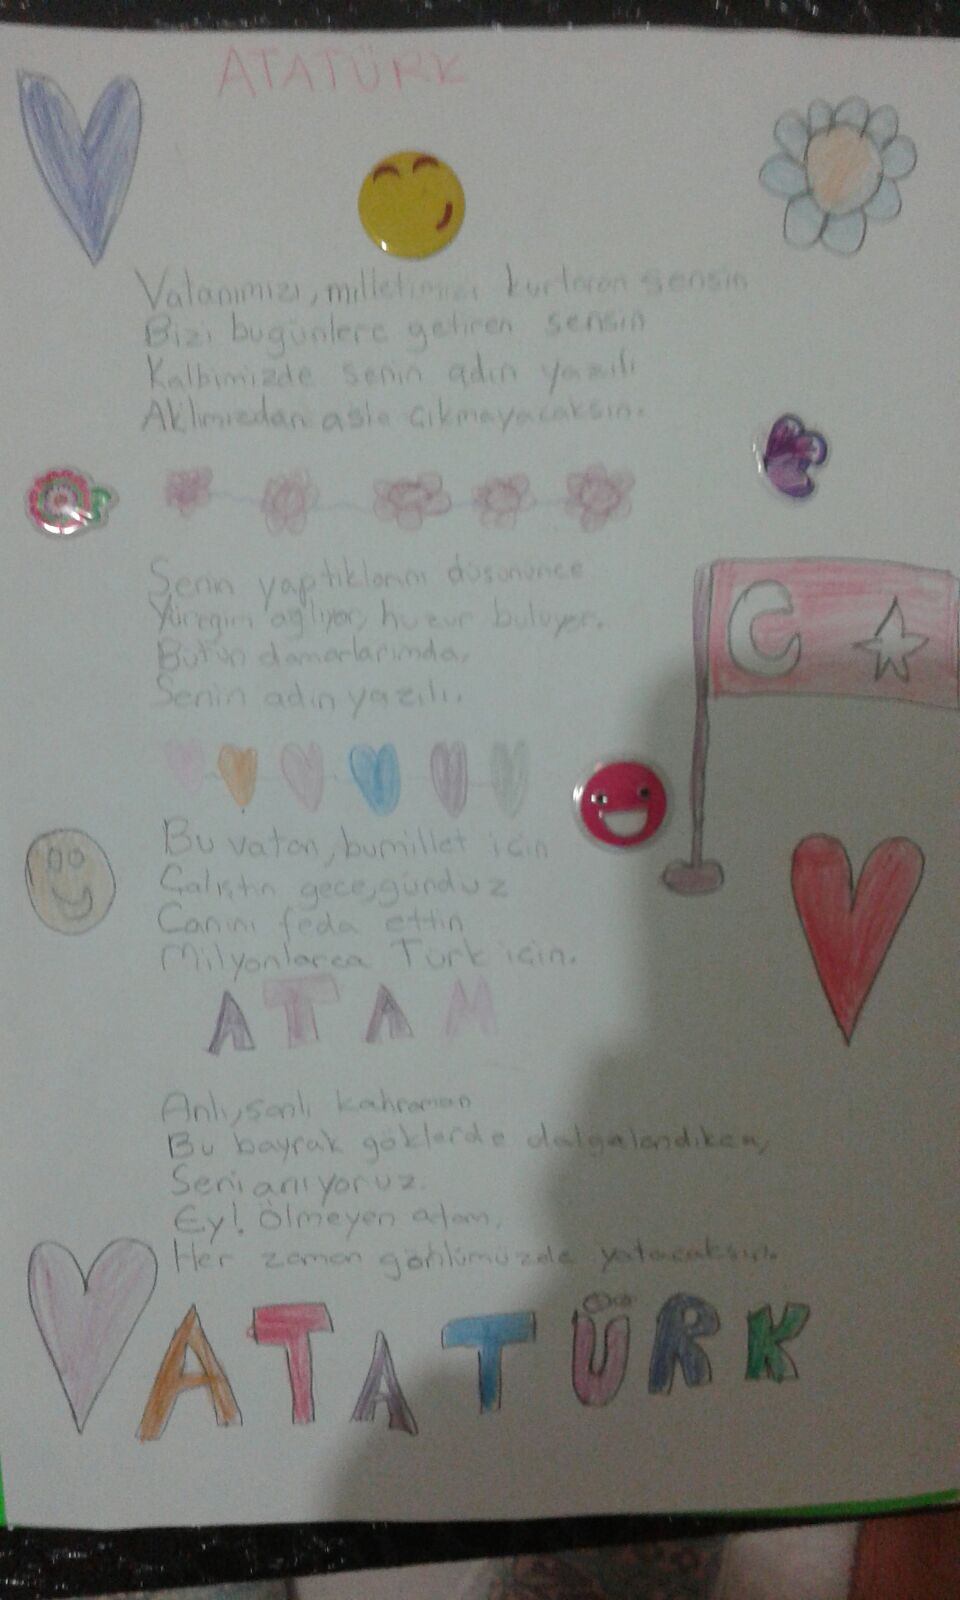 ATATÜRK
Vatanımızı, milletimizi kurtaran sensin
Bizi bugünlere getiren sensin
Kalbimizde senin adın yazılı
Aklımızdan asla çıkmayacaksın.
Senin yaptıklarını düşününce
Yüreğim ağlıyor, huzur buluyor.
Bütün damarlarımda,
Senin adın yazılı.
Bu vatan, bu millet için
Çalıştın gece, gündüz
Canını feda ettin
Milyonlarca Türk için.
ATAM
Anlı, şanlı kahraman
Bu bayrak göklerde dalgalandıkca,
Seni anıyoruz.
Ey! Ölmeyen atam,
Her zaman gönlümüzde yatacaksın.
ATATÜRK